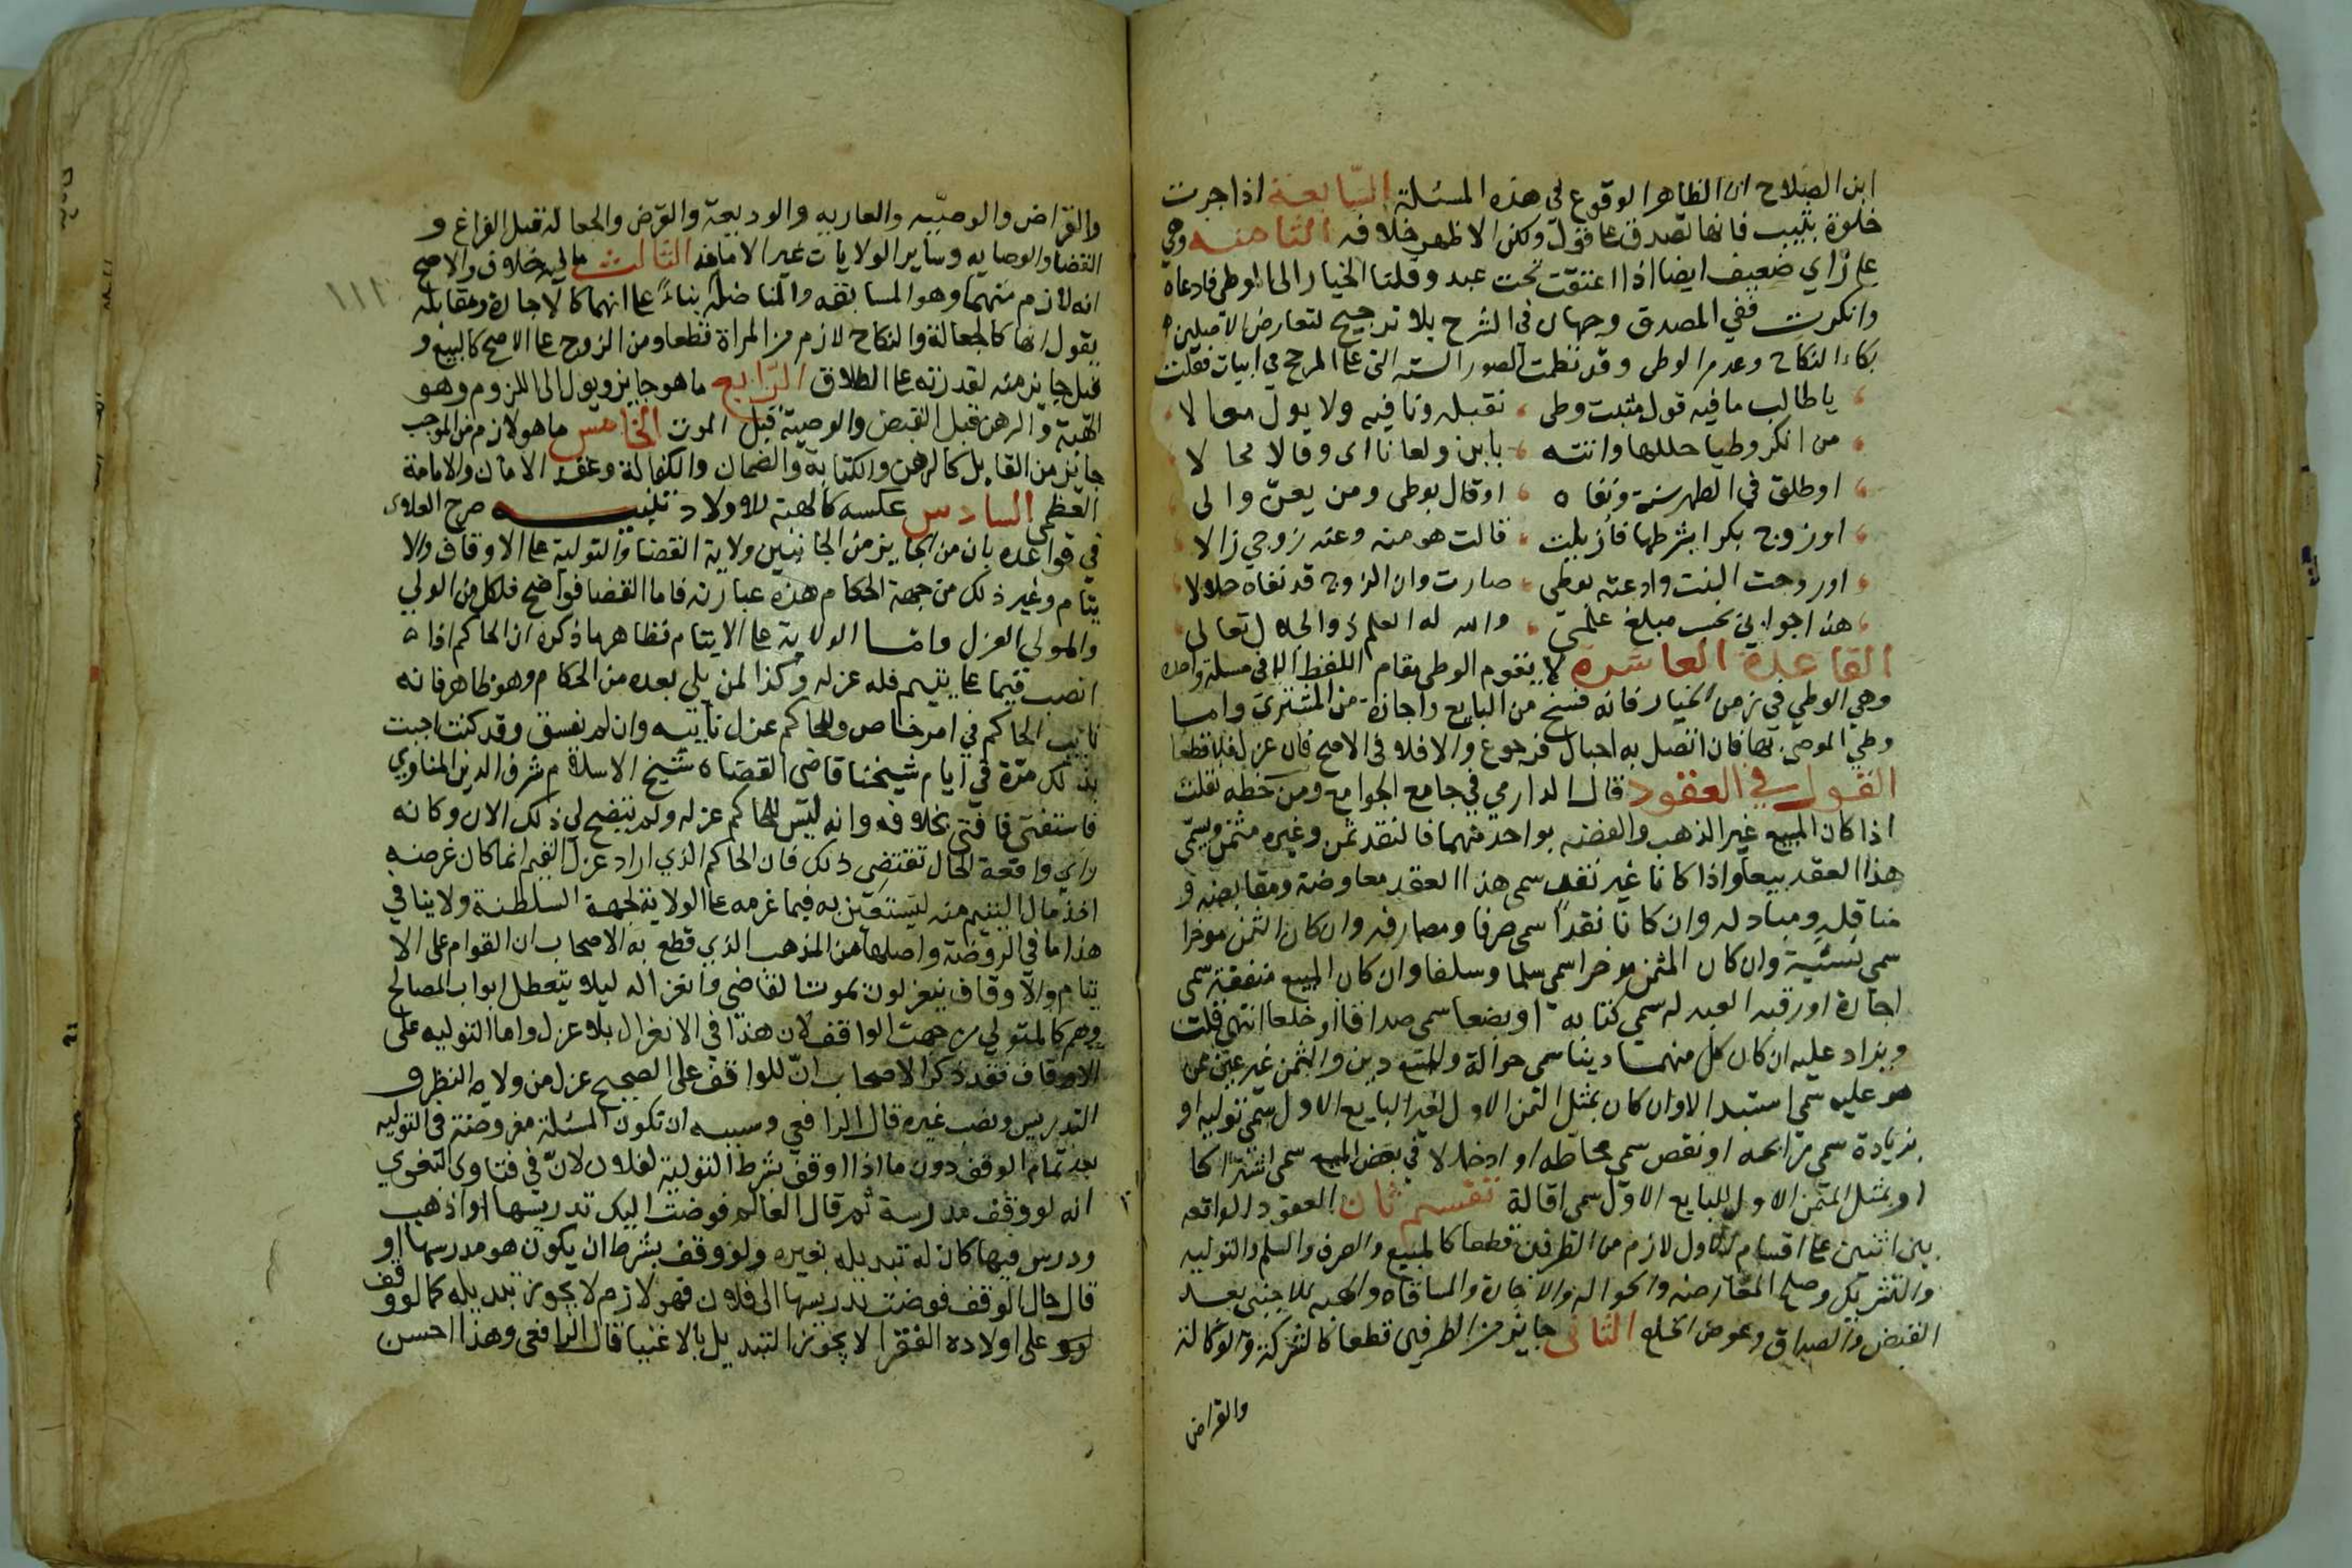 ابن الصلاح ان الظاهر الوقوع في هذه المسئلة السابعة اذا جرت
خلوة بثيب فانها تصدق على قول ولكن الاظهر خلافه الثامنة وهي
على راي ضعيف ايضا اذا اعتقت تحت عبد وقلنا الخيار الى الوطى فادعاه
وانكرت ففي المصدق وجهان في الشرح بلا ترجيح لتعارض الاصلين
بقاء النكاح وعدم الوطى وقد نظمت الصور السته التي على المرجح في ابيات فقلت
يا طالب ما فيه قول مثبت وطى نقبله ونافيه ولا يول مقالا
من انكر وطيا حللها واتته بابن ولعانا ابى وقالا محالا
او طلق في الطهر سنة ونفاه او قال بوطى ومن يعن والى
او زوج بكرا بشرطها فازيلت قالت هو منه وعنه زوجي زالا
او زوجت البنت وادعته بوطى صارت وان الزوج قد نفاه حلالا
هذا جوابي بحسب مبلغ علمي والله له العلم ذو الجلال تعالى
القاعدة العاشرة لا يقوم الوطى مقام اللفظ الا في مسئلة واحدة
وهي الوطي في زمن الخيار فانه فسخ من البايع واجازة من المشتري واما
وطي الموصى بها فان اتصل به احبال فرجوع والا فلا في الاصح فان عزل فلا قطعا
القول في العقود قال الدارمي في جامع الجوامع ومن خطه نقلت
اذا كان المبيع غير الذهب والفضه بواحد منهما فالنقد ثمن وغيره مثمن ويسمى
هذا العقد بيعا واذا كانا غير نقد سمى هذا العقد معاوضة ومقايضه و
مناقله ومبادله وان كانا نقدا سمى صرفا ومصارفه وان كان الثمن موخرا
سمى نسئية وان كان المثمن موخرا سمى سلما وسلفا وان كان المبيع منفعة سمى
اجارة او رقبه العبد له سمى كتابه او بضعا سمى صداقا او خلعا انتهى قلت
ويزاد عليه ان كان كل منهما دينا سمى حوالة والمبيع دين والثمن غير عين ممن
هو عليه سمى استبدالا وان كان بمثل الثمن الاول لغير البايع الاول سمى توليه او
بزيادة سمى مرابحه او نقص سمى محاطه او ادخالا في بعض المبيع سمى اشتراكا
او بمثل الثمن الاول للبايع الاول سمى اقالة تقسيم ثان العقود الواقعه
بين اثنين على اقسام الاول لازم من الطرفين قطعا كالمبيع والصرف والسلم والتوليه
والتشريك وصلح المعاوضه والحواله والاجارة والمساقاه والهبه للاجنبى بعد
القبض والصداق وعوض الخلع الثاني جايز من الطرفين قطعا كالشركة والوكالة
والقراض
والقراض والوصيه والعاريه والوديعة والقرض والجعاله قبل الفراغ و
القضا والوصايه وساير الولايات غير الامامه الثالث ما فيه خلاف والاصح
انه لازم منهما وهو المسابقه والمناضلة بناء على انهما كالاجارة ومقابله
يقول انها كالجعالة والنكاح لازم من المراة قطعا ومن الزوج على الاصح كالبيع و
قيل جايز منه لقدرته على الطلاق الرابع ما هو جايز ويول الى اللزوم وهو
الهبة والرهن قبل القبض والوصية قبل الموت الخامس ما هو لازم من الموجب
جائز من القابل كالرهن والكتابة والضمان والكفالة وعقد الامان والامامة
العظمى السادس عكسه كالهبة للاولاد تنبيه صرح العلاى
في قواعده بان من الجايز من الجانبين ولاية القضا والتولية على الاوقاف والا
يتام وغير ذلك من جهة الحكام هذه عبارته فاما القضا فواضح فلكل من المولي
والمولي العزل واما الولاية على الايتام فظاهر ما ذكره ان الحاكم اذا
انصب قيما على يتيم فله عزله وكذا لمن يلي بعده من الحكام وهو ظاهر فانه
نايب الحاكم في امر خاص وللحاكم عزل نايبه وان لم يفسق وقد كنت اجبت
بذلك مرة في ايام شيخنا قاضى القضاه شيخ الاسلام شرف الدين المناوي
فاستفتى فافتى بخلافه وانه ليس للحاكم عزله ولم يتضح لي ذلك الان وكانه
راي واقعة الحال تقتضي ذلك فان الحاكم الذي اراد عزل القيم انما كان غرضه
اخذ مال اليتيم منه ليستعين به فيما غرمه على الولاية لجهة السلطنة ولا ينافي
هذا ما في الروضة واصلها من المذهب الذي قطع به الاصحاب ان القوام على الا
يتام والاوقاف لا ينعزلون بموت القاضي وانعزاله ليلا يتعطل ابواب المصالح
وهم كالمتولي من جهة الواقف لان هذا في الانعزال بلا عزل واما التوليه على
الاوقاف فقد ذكر الاصحاب ان للواقف على الصحيح عزل من ولاه النظر و
التدريس ونصب غيره قال الرافعي وسببه ان تكون المسئلة مفروضة في التوليه
بعد تمام الوقف دون ما اذا اوقف بشرط التولية لفلان لان في فتاوى البغوي
انه لو وقف مدرسة ثم قال لعالم فوضت اليك تدريسها او اذهب
ودرس فيها كان له تبديله بغيره ولو وقف بشرط ان يكون هو مدرسها او
قال حال الوقف فوضت تدريسها الى فلان فهو لازم لا يجوز تبديله كما لو وقف
على اولاده الفقرا لا يجوز التبديل بالاغنيا قال الرافعي وهذا احسن
١١٢